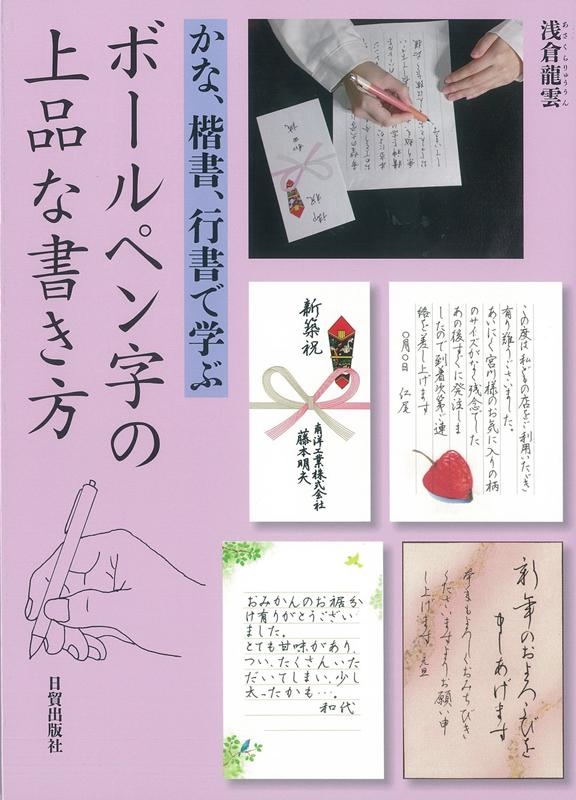 浅倉龍雲
あさくらりゅううん
かな、楷書、行書で学ぶ
ボールペン字の
上品な書き方
新築祝
南洋工業株式会社
藤本明夫
この度は私どもの店をご利用いただき
有り難うございました。
あいにく宮川様のお気に入りの柄
のサイズがなく残念でした
あの後すぐに発注しま
したので到着次第ご連
絡を差し上げます
〇月〇日 仁屋
おみかんのお裾分
け有りがとうござい
ました。
とても甘味があり、
つい、たくさんいた
だいてしまい、少し
太ったかも…。
和代
新年のおよろこびを
申しあげます
本年もよろしくおみちびき
くださいますようお願い申
し上げます 元旦
日貿出版社